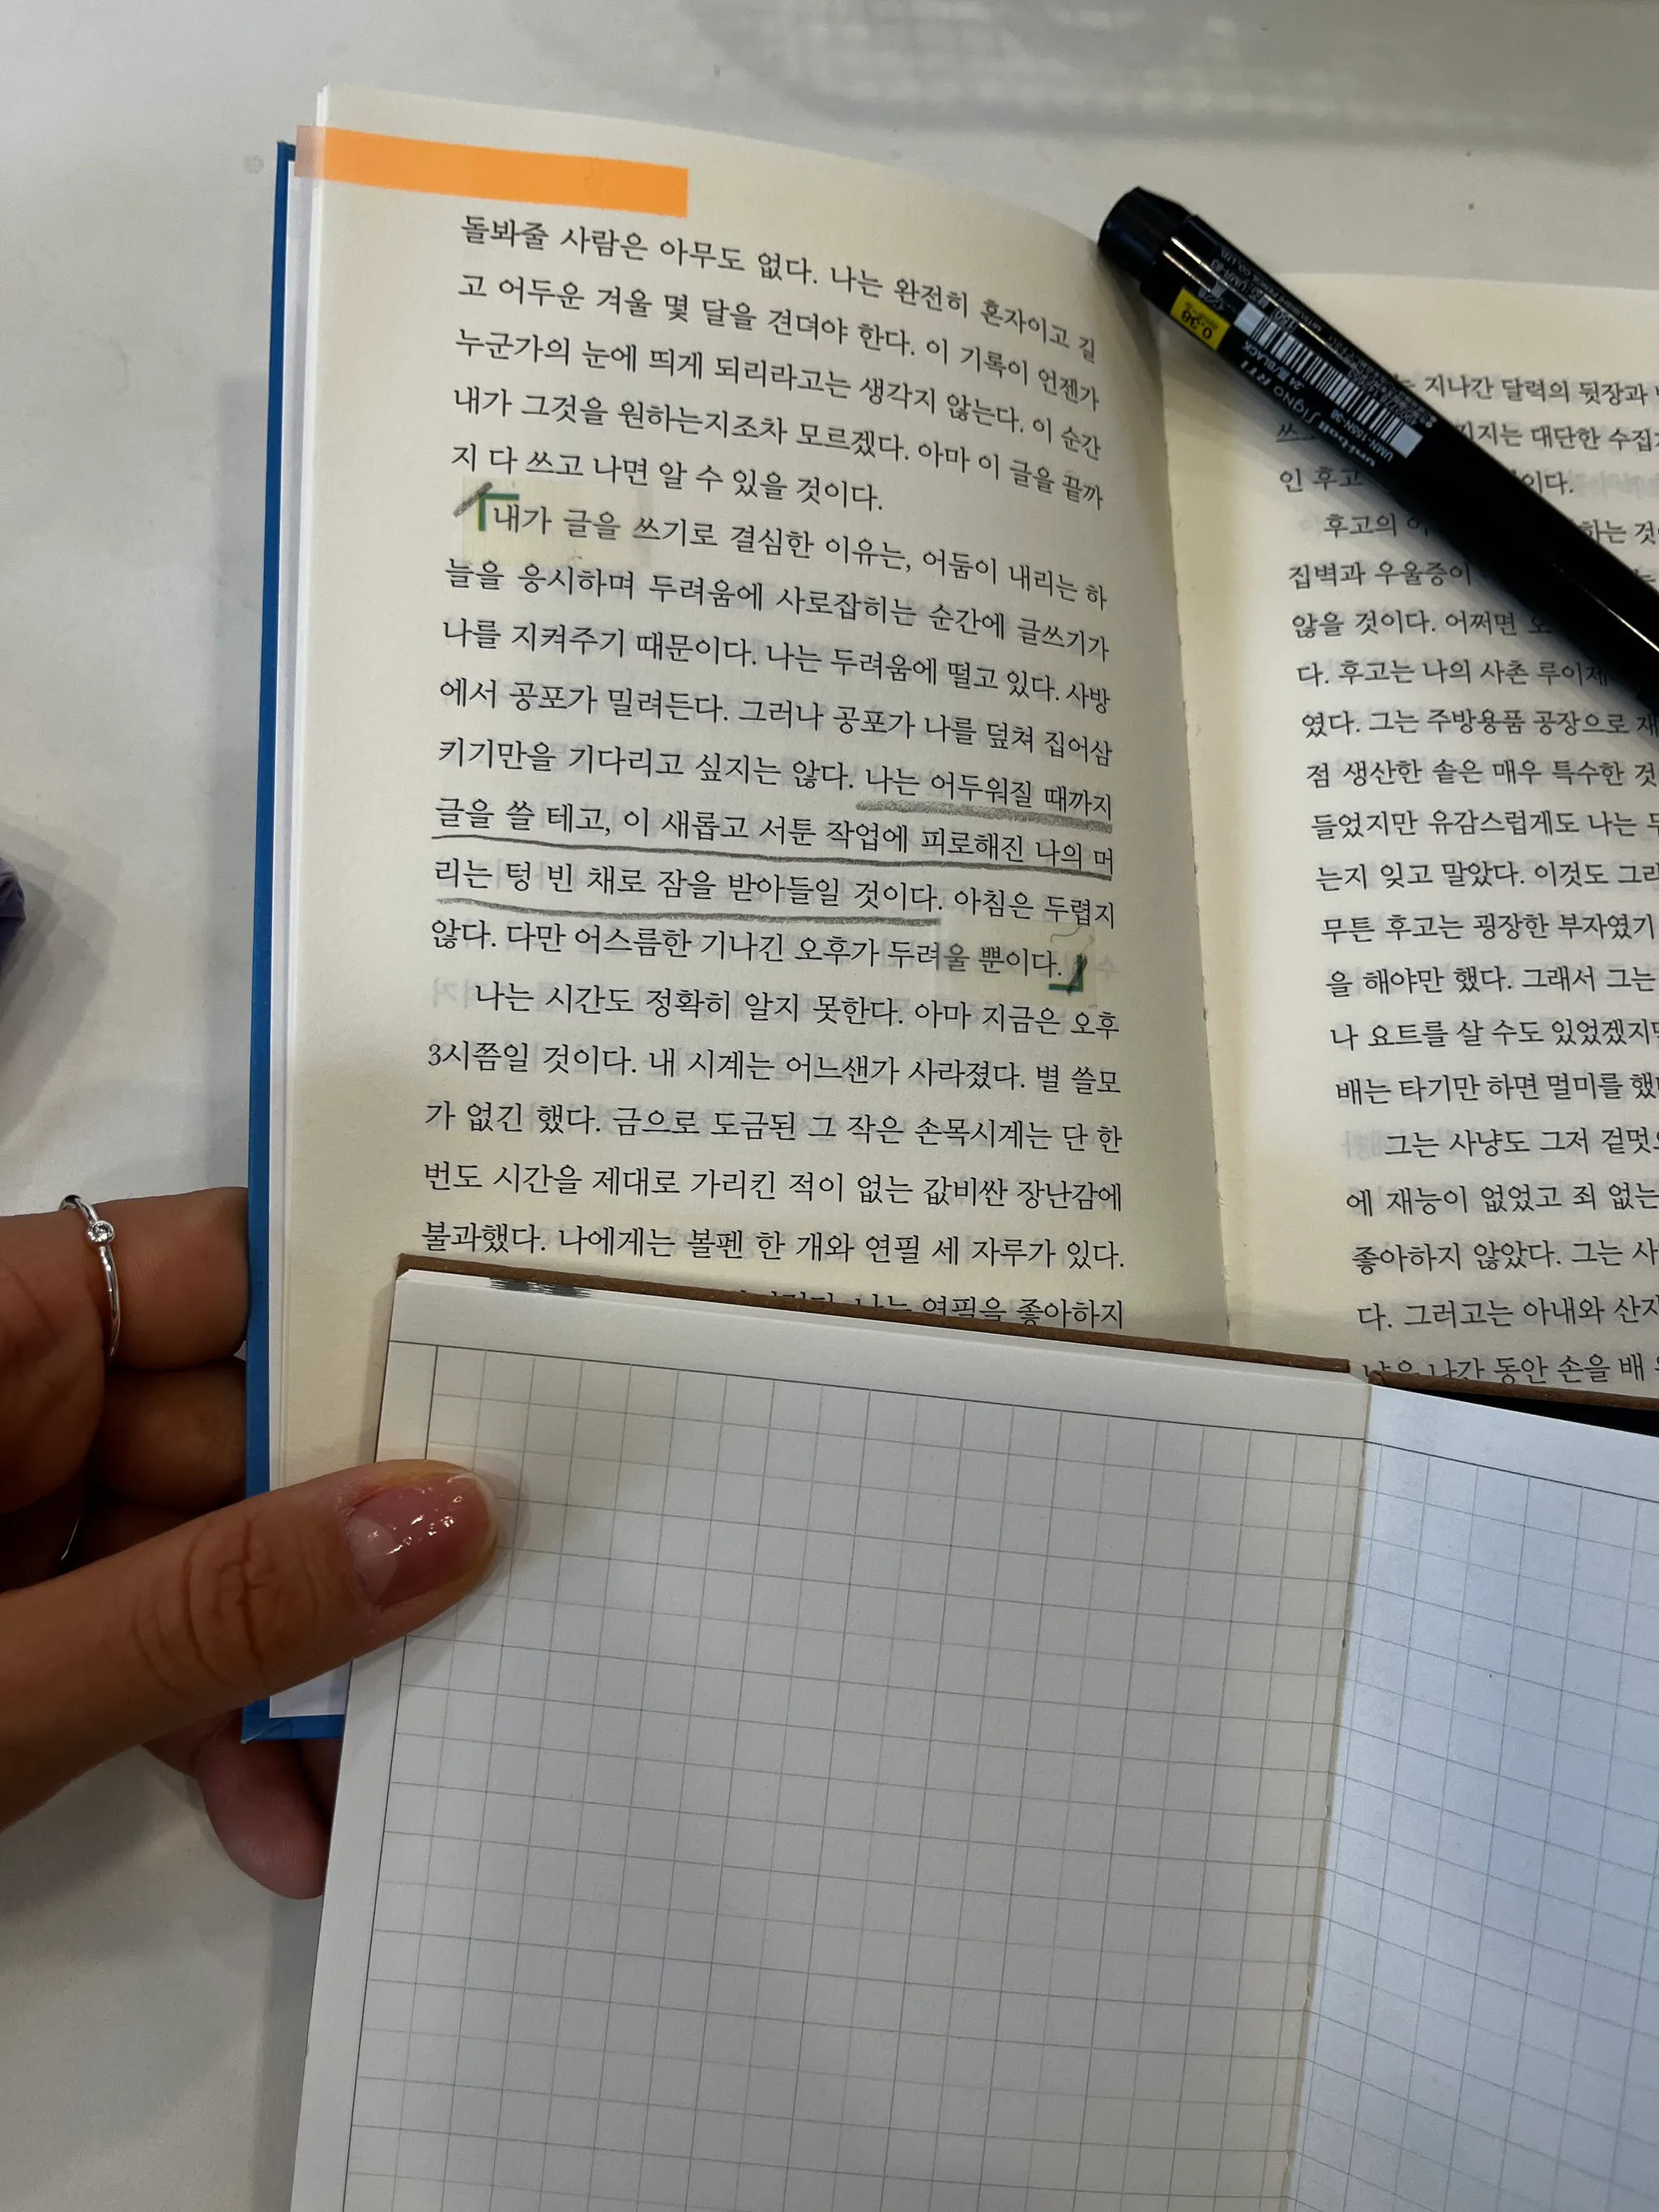 돌봐줄 사람은 아무도 없다. 나는 완전히 혼자이고 길
고 어두운 겨울 몇 달을 견뎌야 한다. 이 기록이 언젠가
누군가의 눈에 띄게 되리라고는 생각지 않는다. 이 순간
내가 그것을 원하는지조차 모르겠다. 아마 이 글을 끝까
지 다 쓰고 나면 알 수 있을 것이다.
내가 글을 쓰기로 결심한 이유는, 어둠이 내리는 하
늘을 응시하며 두려움에 사로잡히는 순간에 글쓰기가
나를 지켜주기 때문이다. 나는 두려움에 떨고 있다. 사방
에서 공포가 밀려든다. 그러나 공포가 나를 덮쳐 집어삼
키기만을 기다리고 싶지는 않다. 나는 어두워질 때까지
글을 쓸 테고, 이 새롭고 서툰 작업에 피로해진 나의 머
리는 텅 빈 채로 잠을 받아들일 것이다. 아침은 두렵지
않다. 다만 어스름한 기나긴 오후가 두려울 뿐이다.
나는 시간도 정확히 알지 못한다. 아마 지금은 오후
3시쯤일 것이다. 내 시계는 어느샌가 사라졌다. 별 쓸모
가 없긴 했다. 금으로 도금된 그 작은 손목시계는 단 한
번도 시간을 제대로 가리킨 적이 없는 값비싼 장난감에
불과했다. 나에게는 볼펜 한 개와 연필 세 자루가 있다.
나는 연필을 좋아하지
지나간 달력의 뒷장과
대단한 수집
인 후고
후고의
집벽과 우울증이
않을 것이다. 어쩌면
다. 후고는 나의 사촌 루이제
였다. 그는 주방용품 공장으로
점 생산한 솥은 매우 특수한 것
들었지만 유감스럽게도 나는
는지 잊고 말았다. 이것도
무튼 후고는 굉장한 부자였기
을 해야만 했다. 그래서 그는
나 요트를 살 수도 있었겠지만
배는 타기만 하면 멀미를
그는 사냥도 그저
에 재능이 없었고 죄 없는
좋아하지 않았다. 그는
다. 그러고는 아내와
나간 동안 손을 배
0.38
uni-ball Signo RT1
UMN-155N-38
BLACK